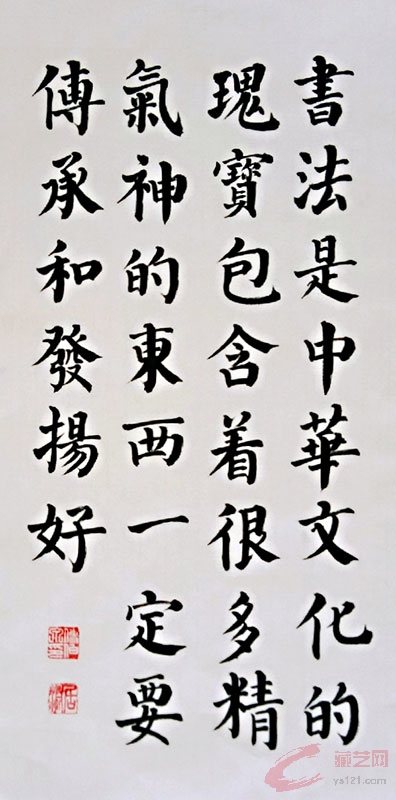 書法是中華文化的
瑰寶包含着很多精
氣神的東西一定要
傳承和發揚好
藏艺网
ys121.com